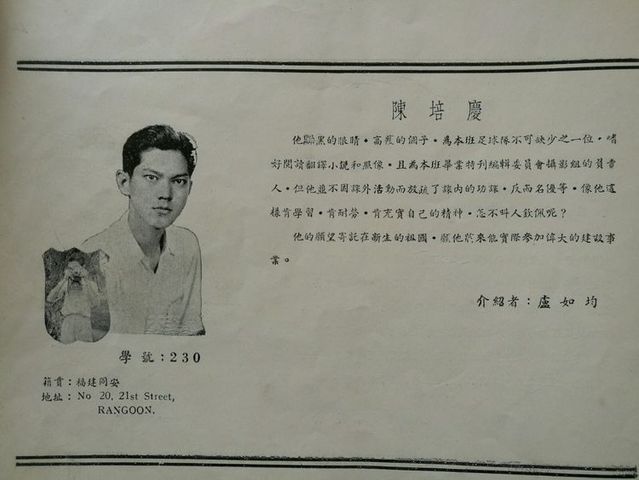 陳培慶
他黝黑的眼睛·高瘦的個子·為本班足球隊不可缺少之一位·嗜
好閱讀翻譯小說和照像·且為本班畢業特刊編輯委員會攝影組的負責
人·但他並不因課外活動而放疏了課內的功課·反而名優等·像他這
樣肯學習·肯耐勞·肯充實自己的精神·怎不叫人欽佩呢?
他的願望寄託在新生的祖國·願他將來能實際參加偉大的建設事
業。
介紹者:盧如均
學號:230
籍貫:福建同安
地址: No 20, 21st Street,
RANGOON.